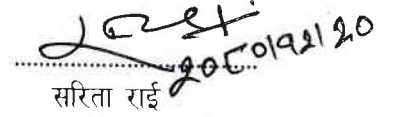 २०८०।१२।२०
सरिता राई